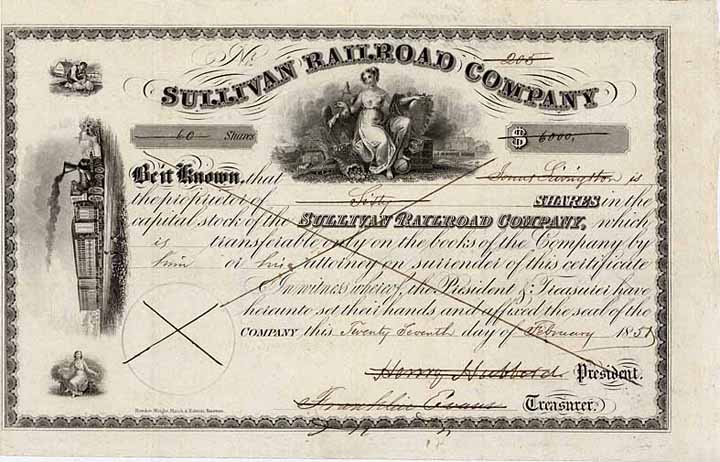 No. 205
SULLIVAN RAILROAD COMPANY
60 Shares $ 6000.
Be it Known, that Livingston is
the proprietor of Sixty SHARES in the
capital stock of the SULLIVAN RAILROAD COMPANY, which
is transferable only on the books of the Company by
him or his attorney on surrender of this certificate
In witness whereof, the President & Treasurer have
hereunto set their hands and affixed the seal of the
COMPANY this Twenty Seventh day of February 1851
Henry Hubbard President.
Franklin Evans Treasurer.